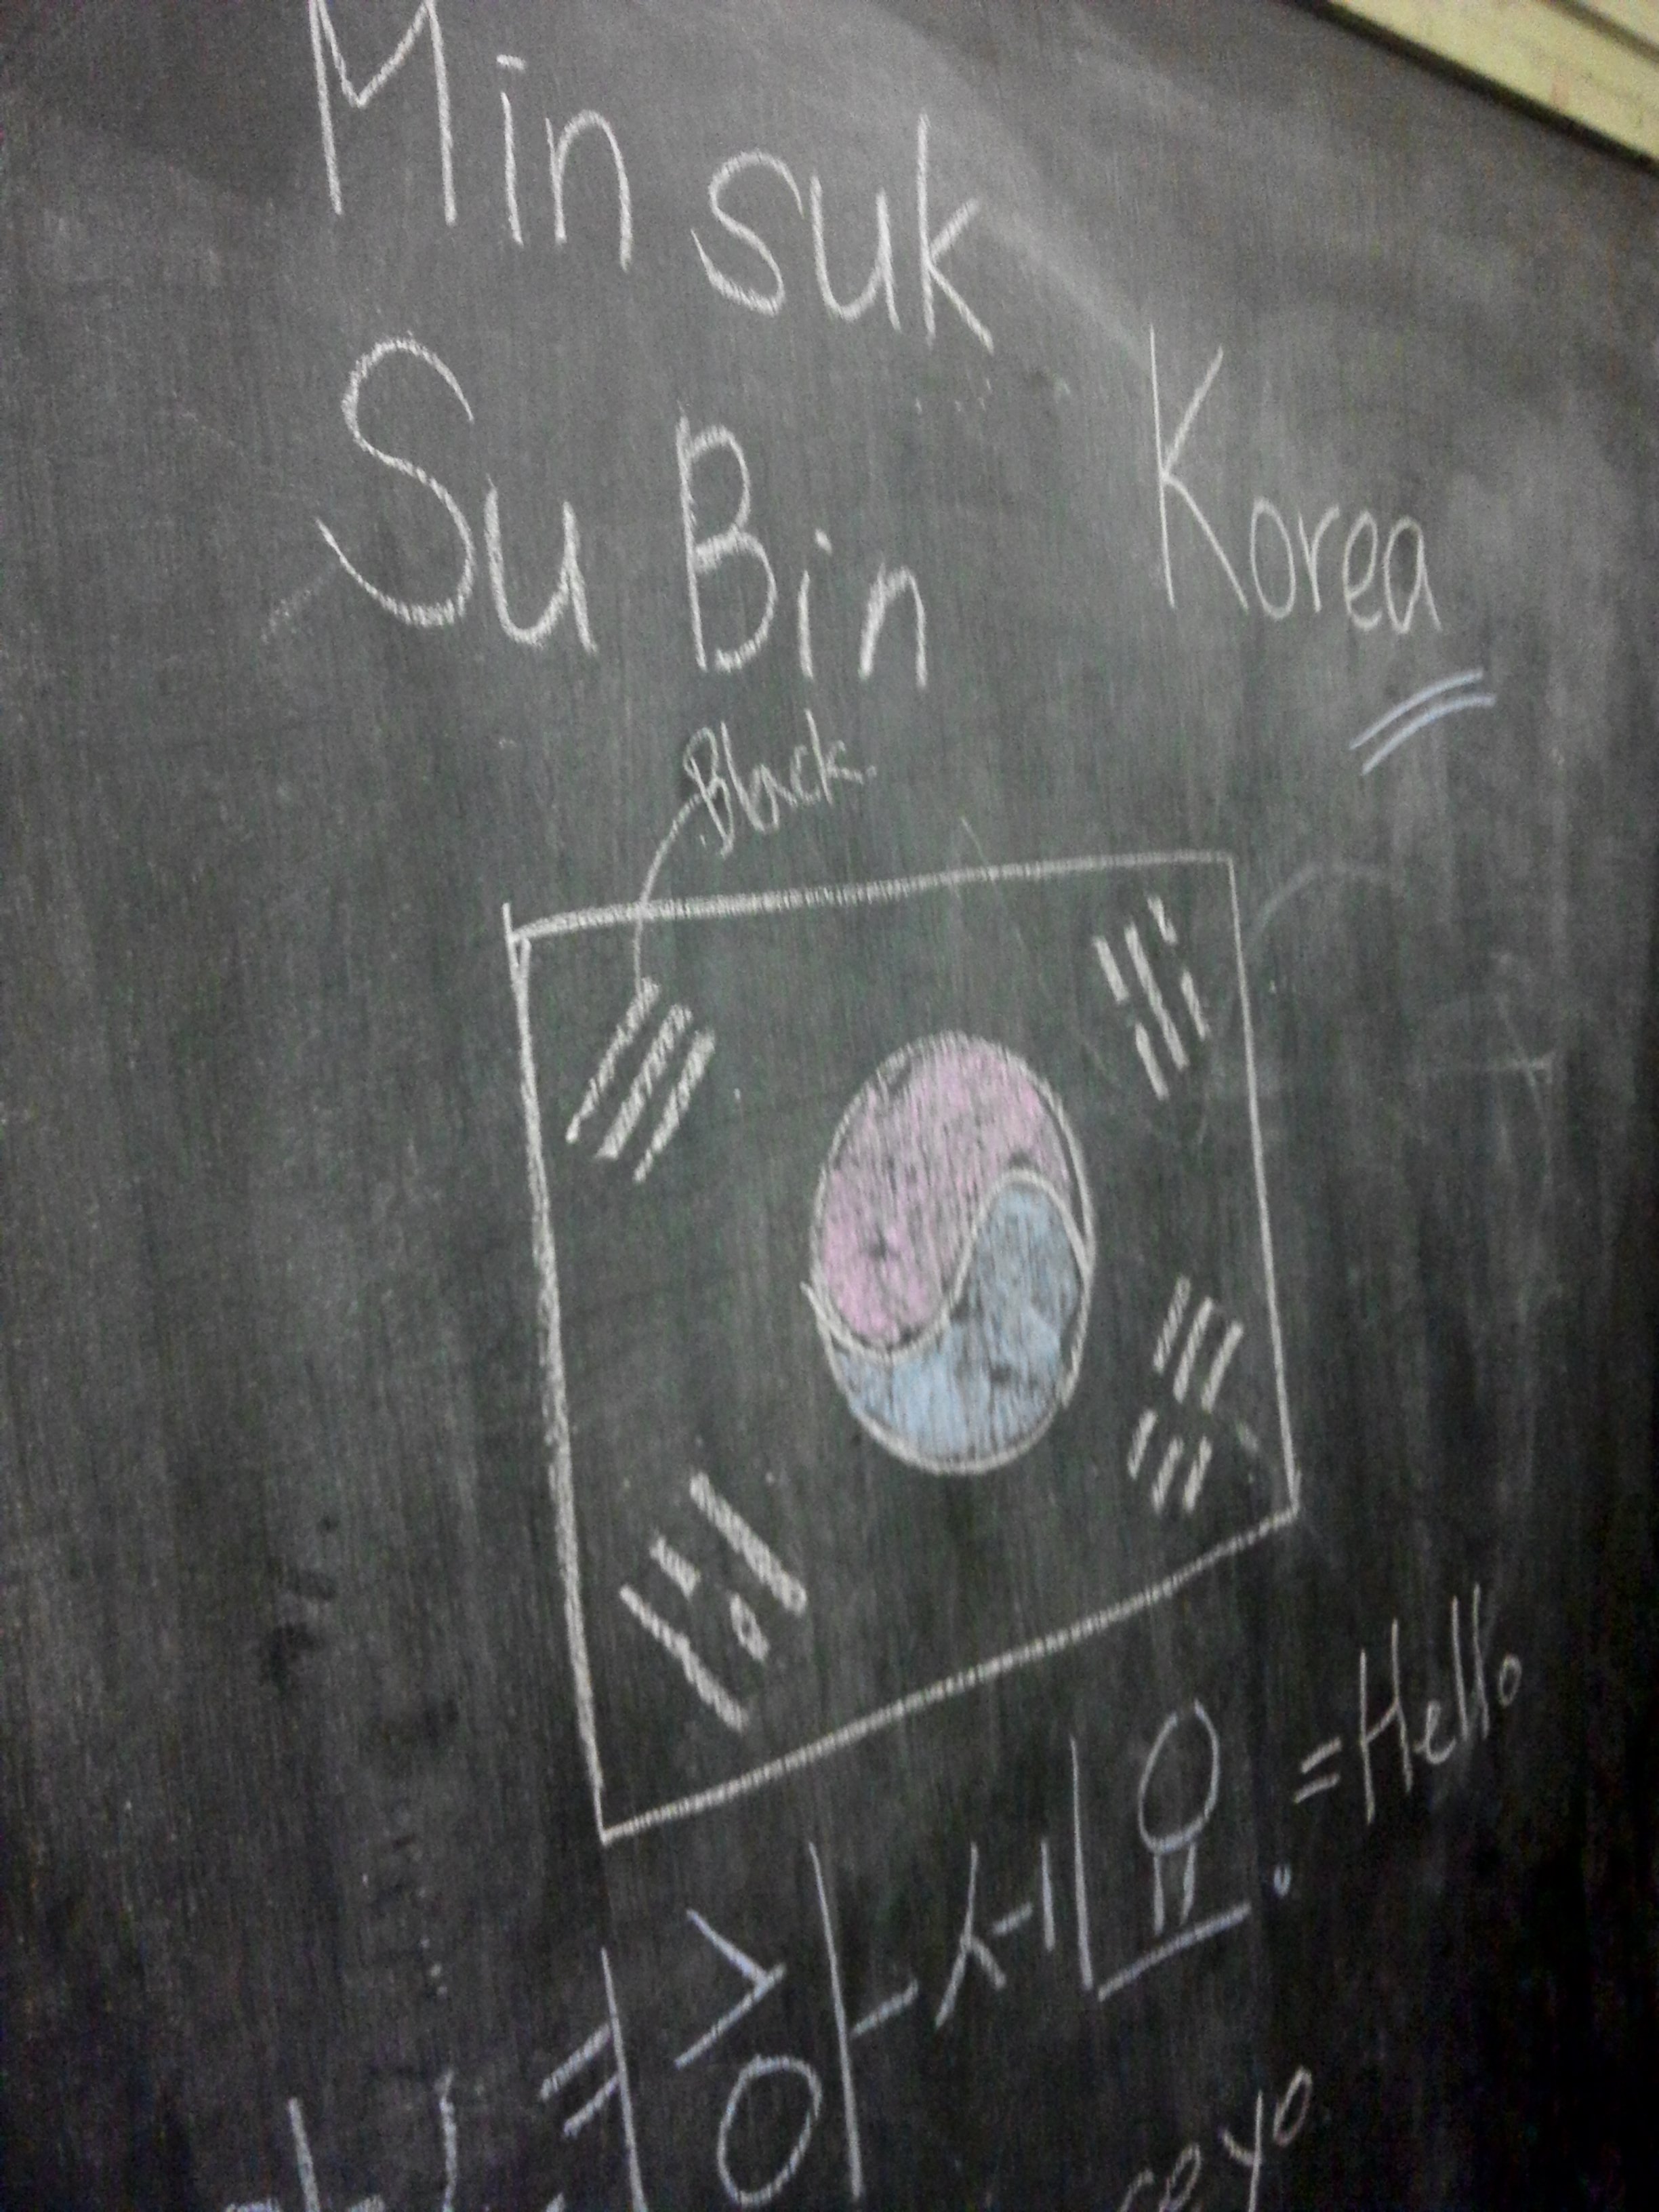 Min suk
Su Bin
Korea
Black
안녕하세요. = Hello